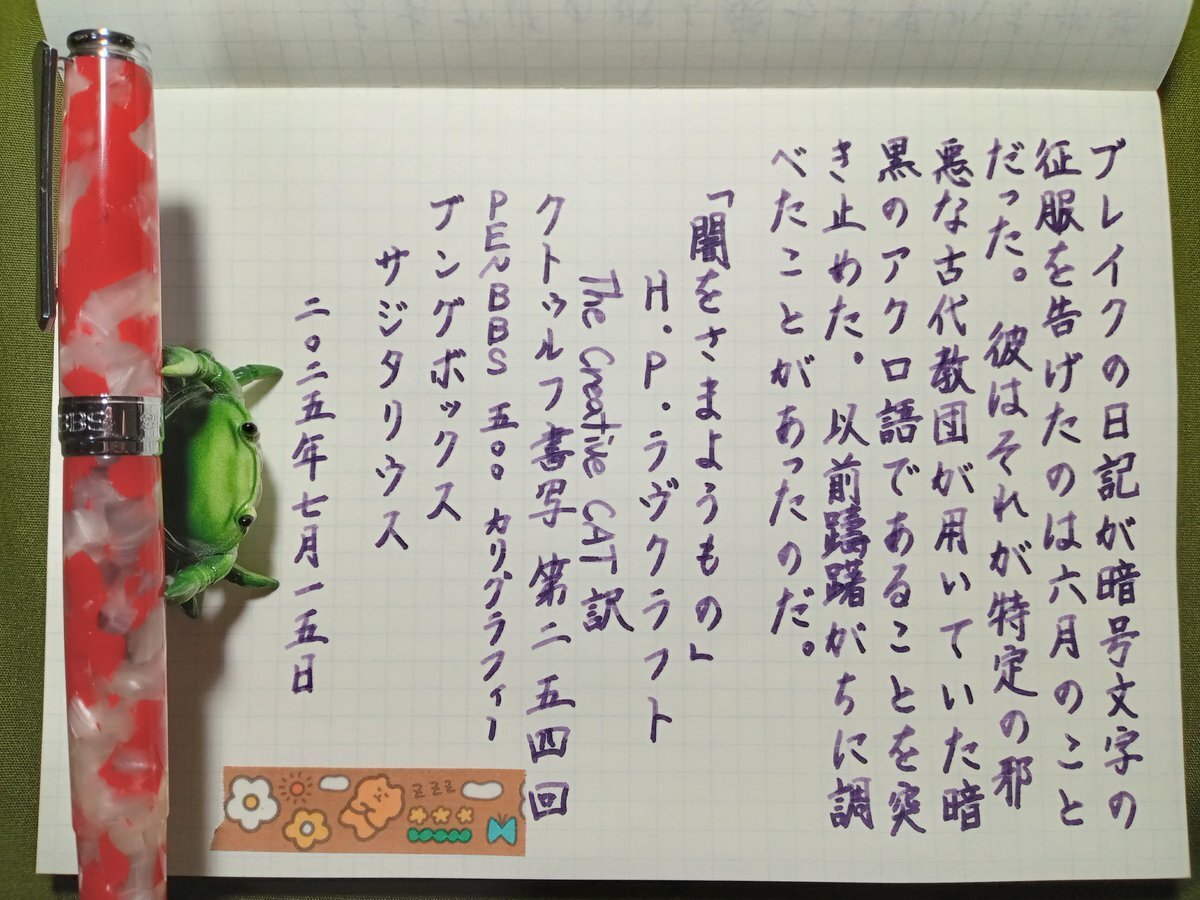 ブレイクの日記が暗号文字の
征服を告げたのは六月のこと
だった。彼はそれが特定の邪
悪な古代教団が用いていた暗
黒のアクロ語であることを突
き止めた。以前躊躇がちに調
べたことがあったのだ。
「闇をさまようもの」
H.P.ラヴクラフト
The Creative CAT 訳
クトゥルフ書写 第二五四回
PEN BBS 五〇〇 カリグラフィー
ブングボックス
サジタリウス
二〇二五年七月一五日
BBS
zzz